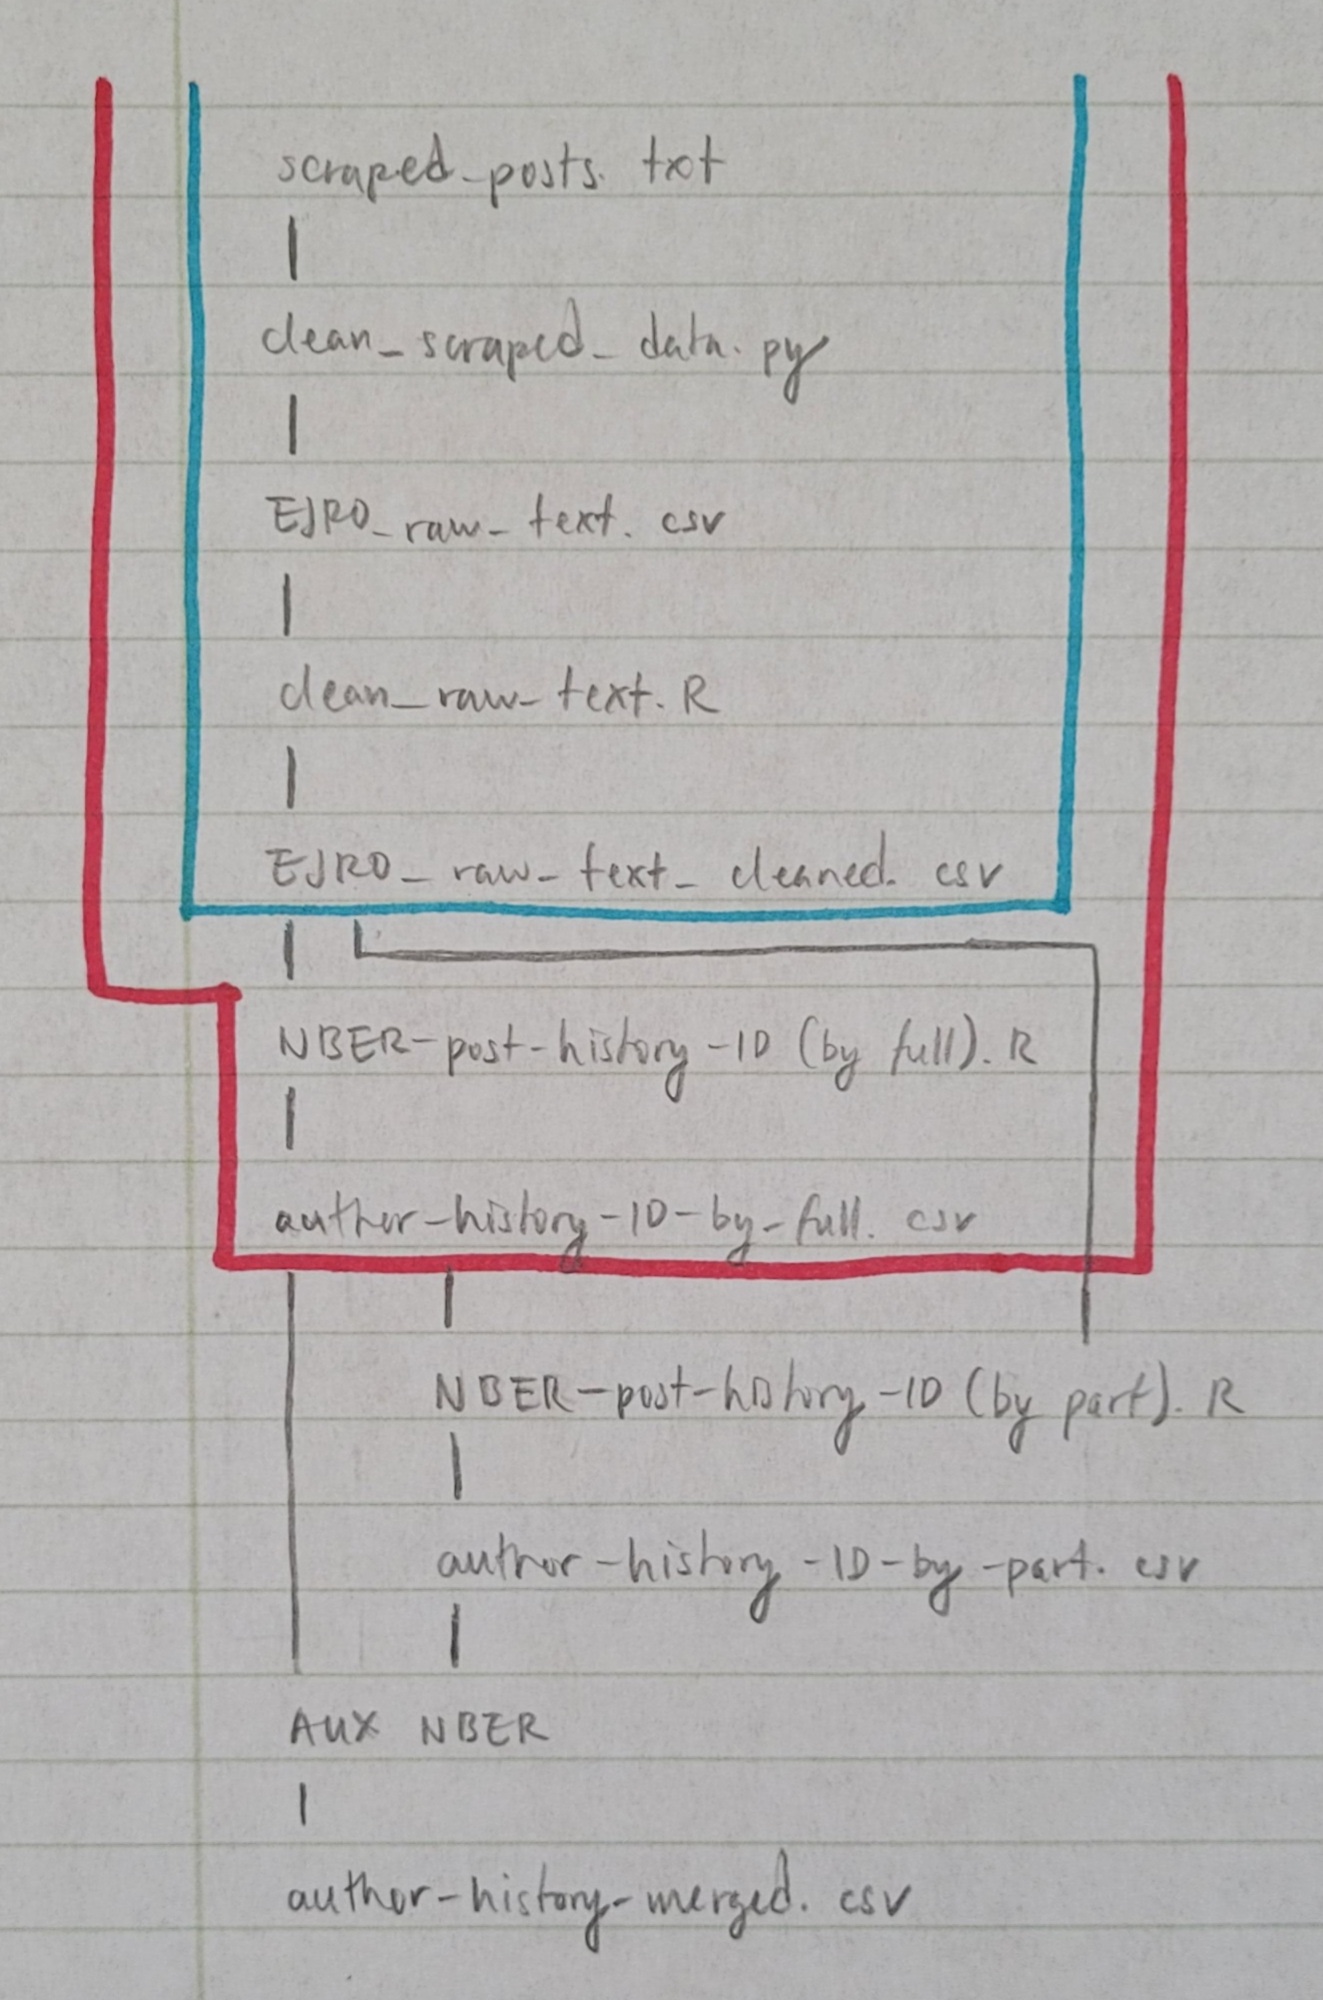 scraped_posts.txt
clean_scraped_data.py
EJRO_raw_text.csv
clean_raw_text.R
EJRO_raw_text_cleaned.csv
NBER-post-history-ID (by full).R
author-history-ID-by-full.csv
NBER-post-history-ID (by part).R
author-history-ID-by-part.csv
AUX NBER
author-history-merged.csv